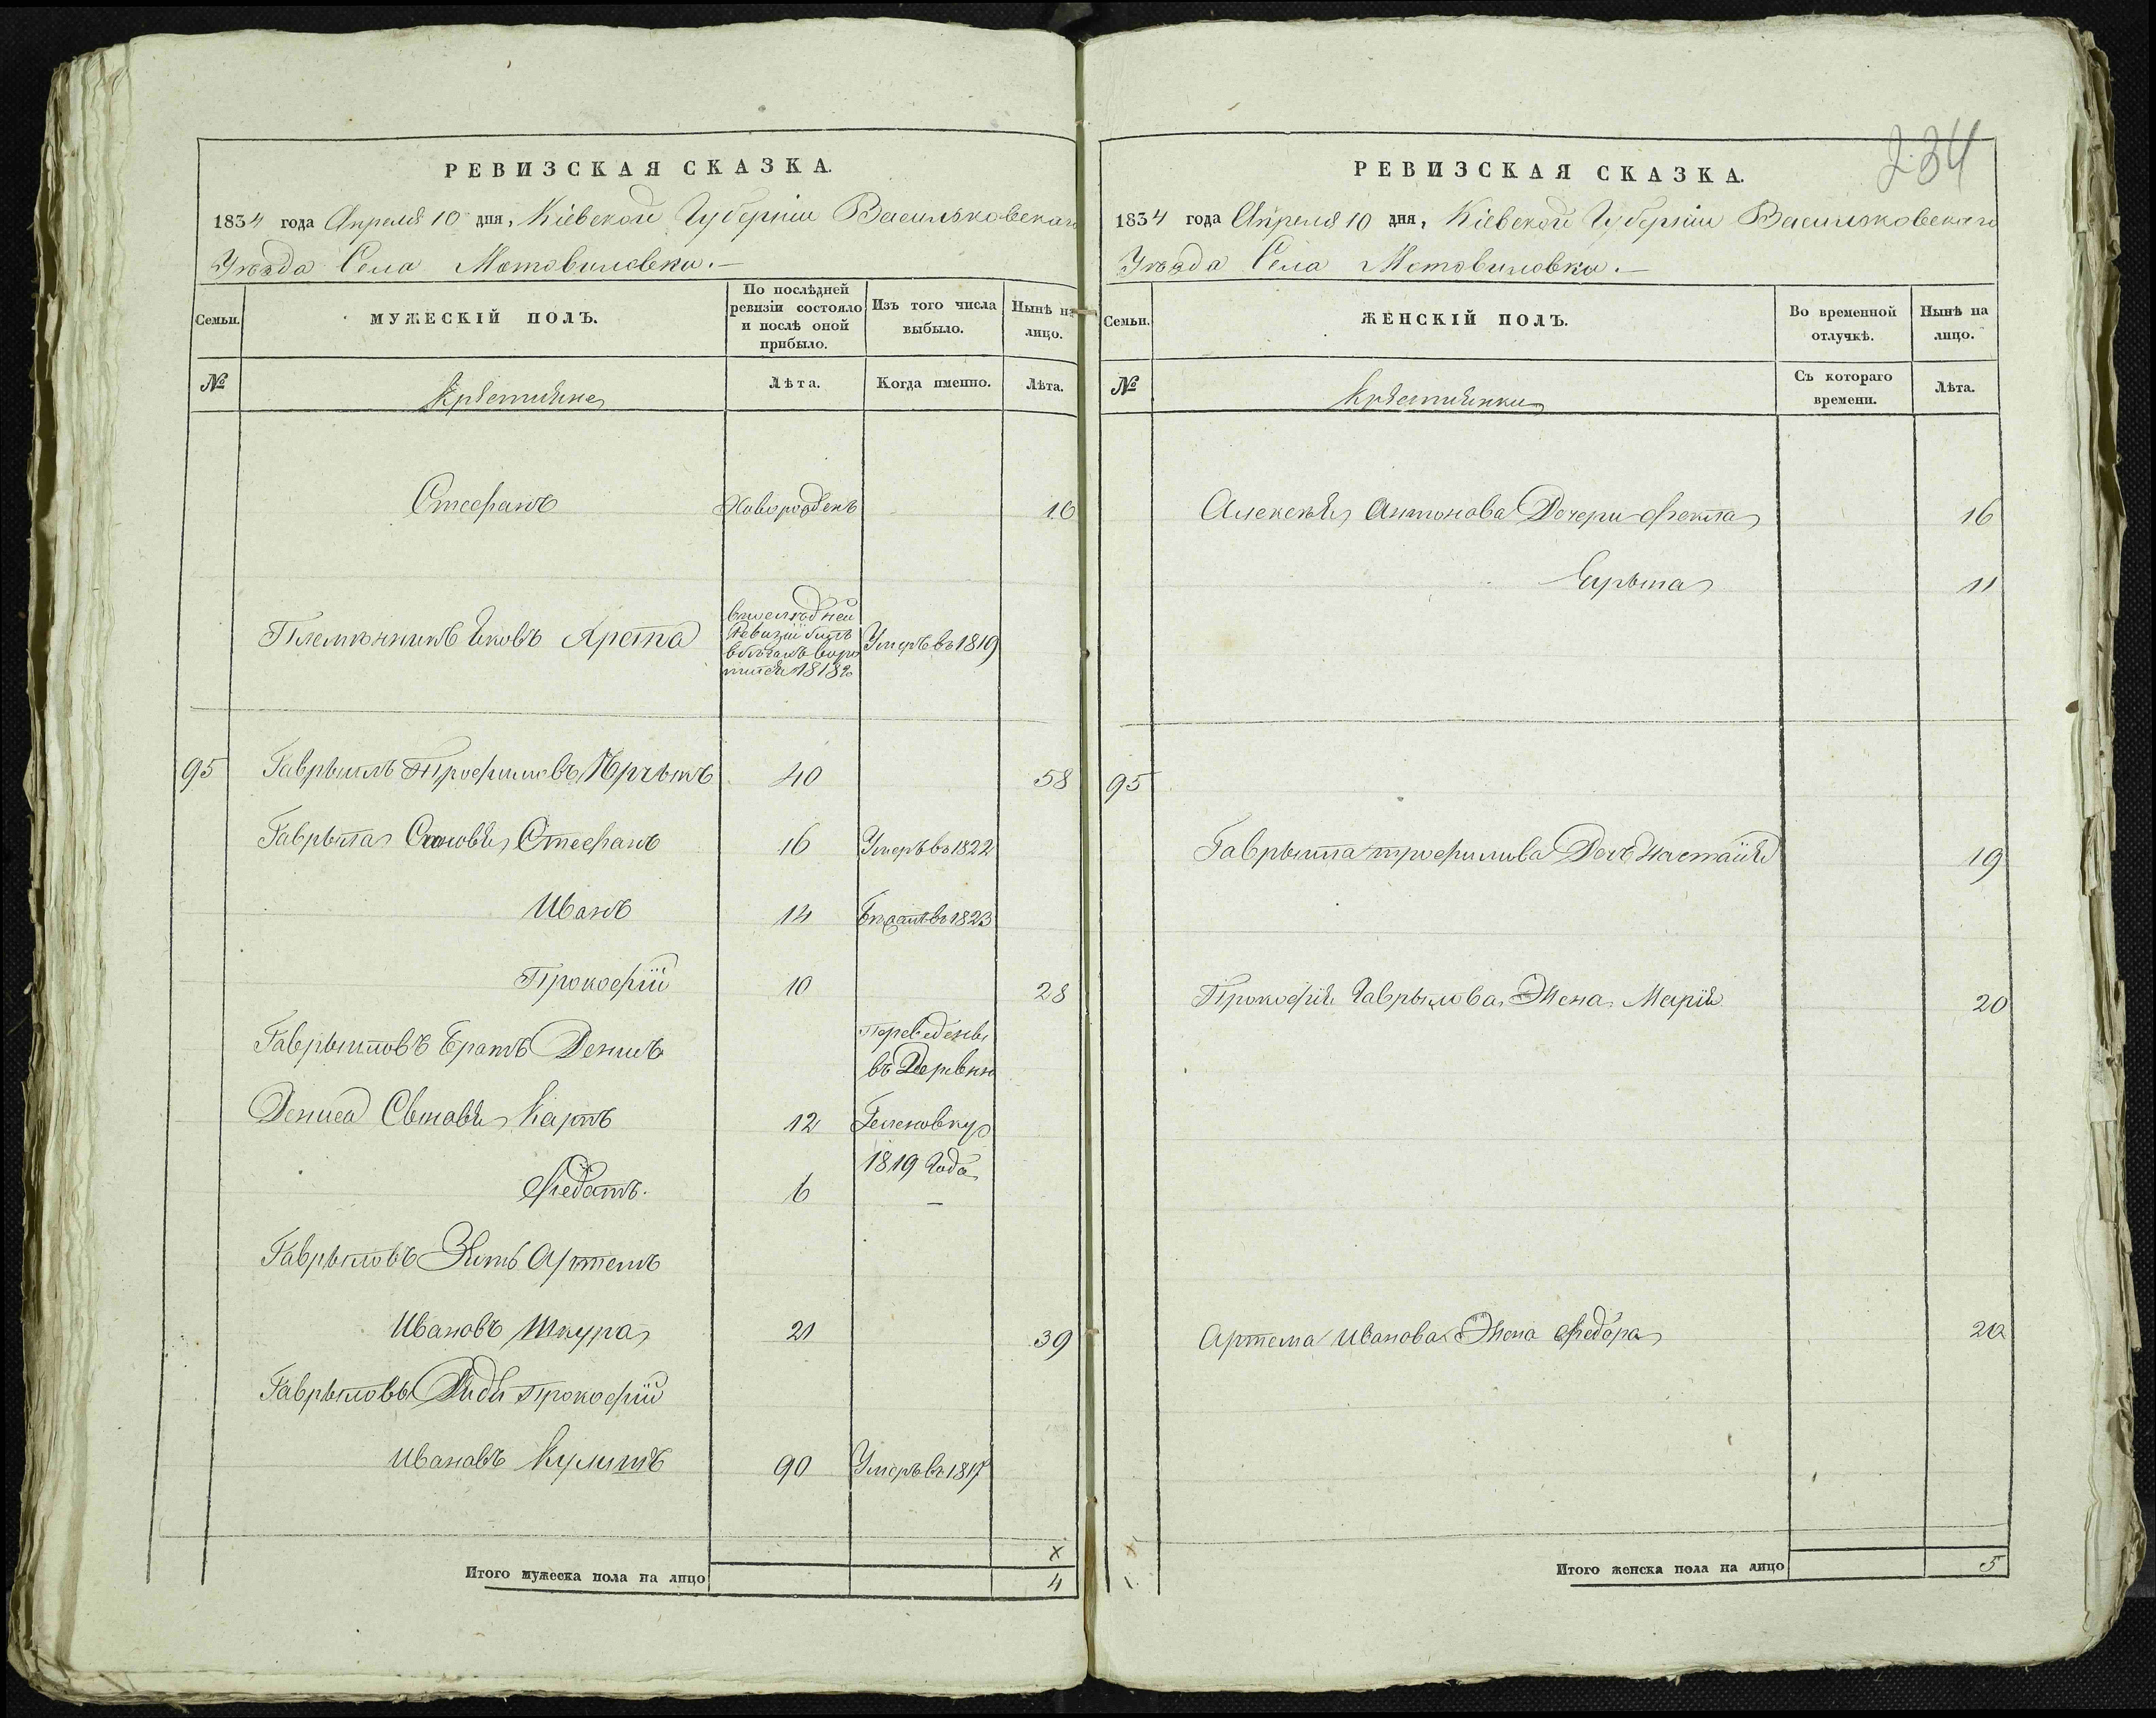 РЕВИЗСКАЯ СКАЗКА.
1834 года Апреля 10 дня, Кіевской Губерніи Васильковскаго
Уѣзда Села Мотовиловки.
Семьи.
МУЖЕСКІЙ ПОЛЪ.
По послѣдней
ревизіи состояло
и послѣ оной
прибыло.
Изъ того числа
выбыло.
Нынѣ на
лицо.
№
Крестьяне
Лѣта.
Когда именно.
Лѣта.
Стефанъ Новорожденъ 16
Племянникъ Яковъ
впоследней
Ревизіи былъ
1818
Умеръ въ 1819
95 Гаврыилъ Трофимовъ 40 58
Гаврыла Сыновья Стефанъ 16 Умеръ въ 1822
Иванъ 14 въ 1823
Прокофій 10 28
Гаврыиловъ Братъ Денисъ
Переведены
въ Деревню
Дениса Сыновья Карпъ 12 Геленовку
1819 Года
Федотъ. 6 —
Гаврыловъ Зять Артемъ
Ивановъ Шкура 21 39
Гаврыловы Дядя Прокофій
Ивановъ Кулишъ 90 Умеръ въ 1817
х
Итого мужеска пола на лицо 4
234
РЕВИЗСКАЯ СКАЗКА.
1834 года Апреля 10 дня, Кіевской Губерніи Васильковскаго
Уѣзда Села Мотовиловки.
Семьи.
ЖЕНСКІЙ ПОЛЪ.
Во временной
отлучкѣ.
Нынѣ на
лицо.
№
Крестьянки
Съ котораго
времени.
Лѣта.
Алексѣя Антонова Дочери Фекла 16
11
95
Гаврыила Трофимова Дочь Настасія 19
Прокофія Гаврылова Жена Марія 20
Артема Иванова Жена Федора 20
х
Итого женска пола на лицо 5